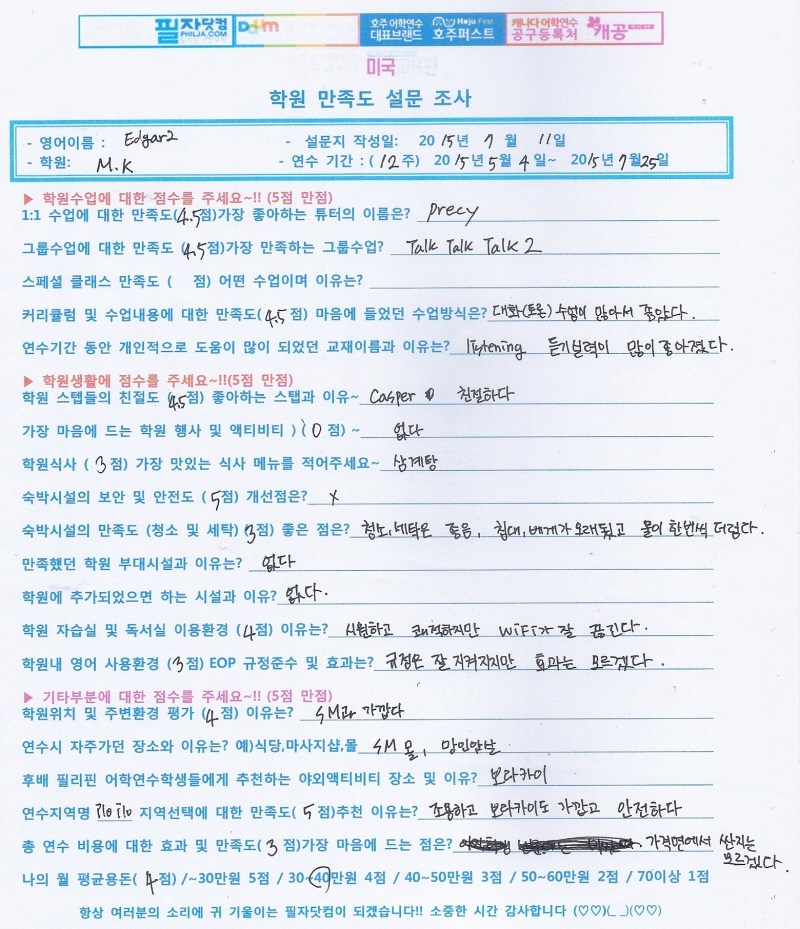 필자닷컴 PHILJA.COM Daum 호주 어학연수 대표브랜드 Hoju First 호주퍼스트 캐나다 어학연수 공구등록처 캐공
미국
학원 만족도 설문 조사
- 영어이름 : Edgar2 - 설문지 작성일: 2015년 7월 11일
- 학원: M.K - 연수 기간 : (12주) 2015년 5월 4일~ 2015년 7월 25일
▶ 학원수업에 대한 점수를 주세요~!! (5점 만점)
1:1 수업에 대한 만족도(4.5점)가장 좋아하는 튜터의 이름은? precy
그룹수업에 대한 만족도 (4.5점)가장 만족하는 그룹수업? Talk Talk Talk 2
스페셜 클래스 만족도 ( 점) 어떤 수업이며 이유는?
커리큘럼 및 수업내용에 대한 만족도(4.5점) 마음에 들었던 수업방식은? 대화(토론) 수업이 많아서 좋았다.
연수기간 동안 개인적으로 도움이 많이 되었던 교재이름과 이유는? listening 듣기실력이 많이 좋아졌다.
▶ 학원생활에 점수를 주세요~!!(5점 만점)
학원 스텝들의 친절도 (4.5점) 좋아하는 스탭과 이유~ Casper 친절하다
가장 마음에 드는 학원 행사 및 액티비티 ) (0점) ~ 없다
학원식사 (3점) 가장 맛있는 식사 메뉴를 적어주세요~ 삼계탕
숙박시설의 보안 및 안전도 (5점) 개선점은? x
숙박시설의 만족도 (청소 및 세탁) (3점) 좋은 점은? 청소,세탁은 좋음, 침대,베게가 오래됬고 물이 한번씩 더럽다.
만족했던 학원 부대시설과 이유는? 없다
학원에 추가되었으면 하는 시설과 이유? 없다.
학원 자습실 및 독서실 이용환경 (4점) 이유는? 시원하고 쾌적하지만 WiFi가 잘 끊긴다.
학원내 영어 사용환경 (3점) EOP 규정준수 및 효과는? 규정은 잘 지켜지지만 효과는 모르겠다.
▶ 기타부분에 대한 점수를 주세요~!! (5점 만점)
학원위치 및 주변환경 평가 (4점) 이유는? SM과 가깝다
연수시 자주가던 장소와 이유는? 예)식당,마사지샵,몰 SM 몰, 망인안날
후배 필리핀 어학연수학생들에게 추천하는 야외액티비티 장소 및 이유? 보라카이
연수지역명 Ilo Ilo 지역선택에 대한 만족도( 5점)추천 이유는? 조용하고 보라카이도 가깝고 안전하다
총 연수 비용에 대한 효과 및 만족도(3점)가장 마음에 드는 점은? 가격면에서 싼지는
모르겠다.
나의 월 평균용돈(4점) /~30만원 5점 / 30~40만원 4점 / 40~50만원 3점 / 50~60만원 2점 / 70이상 1점
항상 여러분의 소리에 귀 기울이는 필자닷컴이 되겠습니다!! 소중한 시간 감사합니다 (♡♡)(_ _)(♡♡)